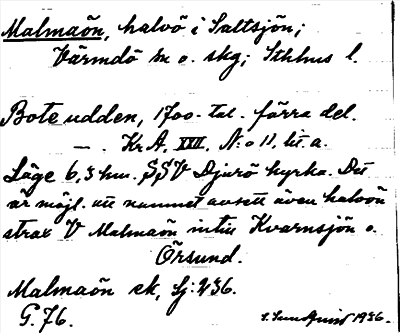 Malmaön, halvö i Saltsjön;
Värmdö sn o. skg; Sthlms l.
Boteudden, 1700-tal. förra del.
—. Kr.A, XXII, N:o 11, lit. a.
Läge 6,3 km. SSV Djurö kyrka. Det
är möjl. att namnet avsett även halvön
strax V Malmaön intill Kvarnsjön o.
Örsund.
Malmaön ek, Sj: 236.
G. 76.
1936.